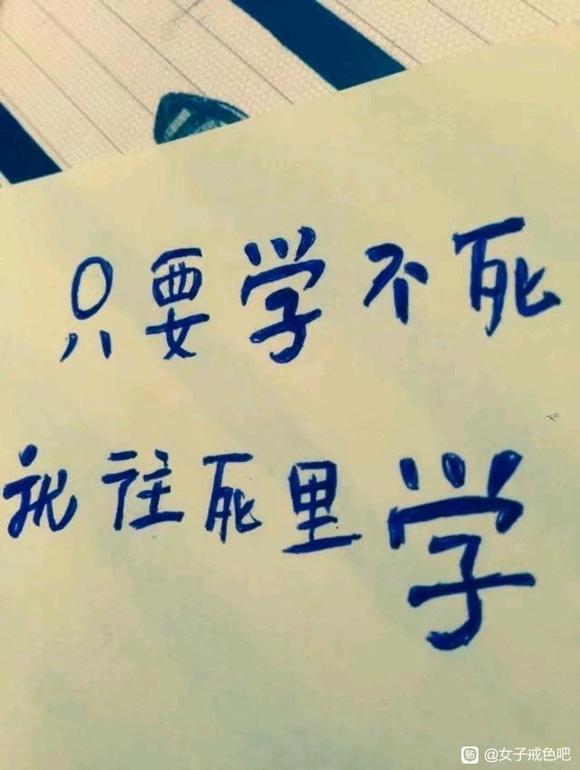 只要学不死
就往死里学
贴 @女子戒色吧